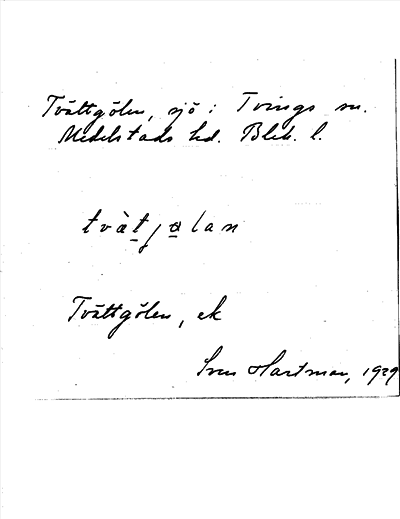 Tvättgölen, sjö i Tvings sn.
Medelstads hd. Blek. l.
tvät̲jəlan
Tvättgölen, ek
Sven Hartman, 1929